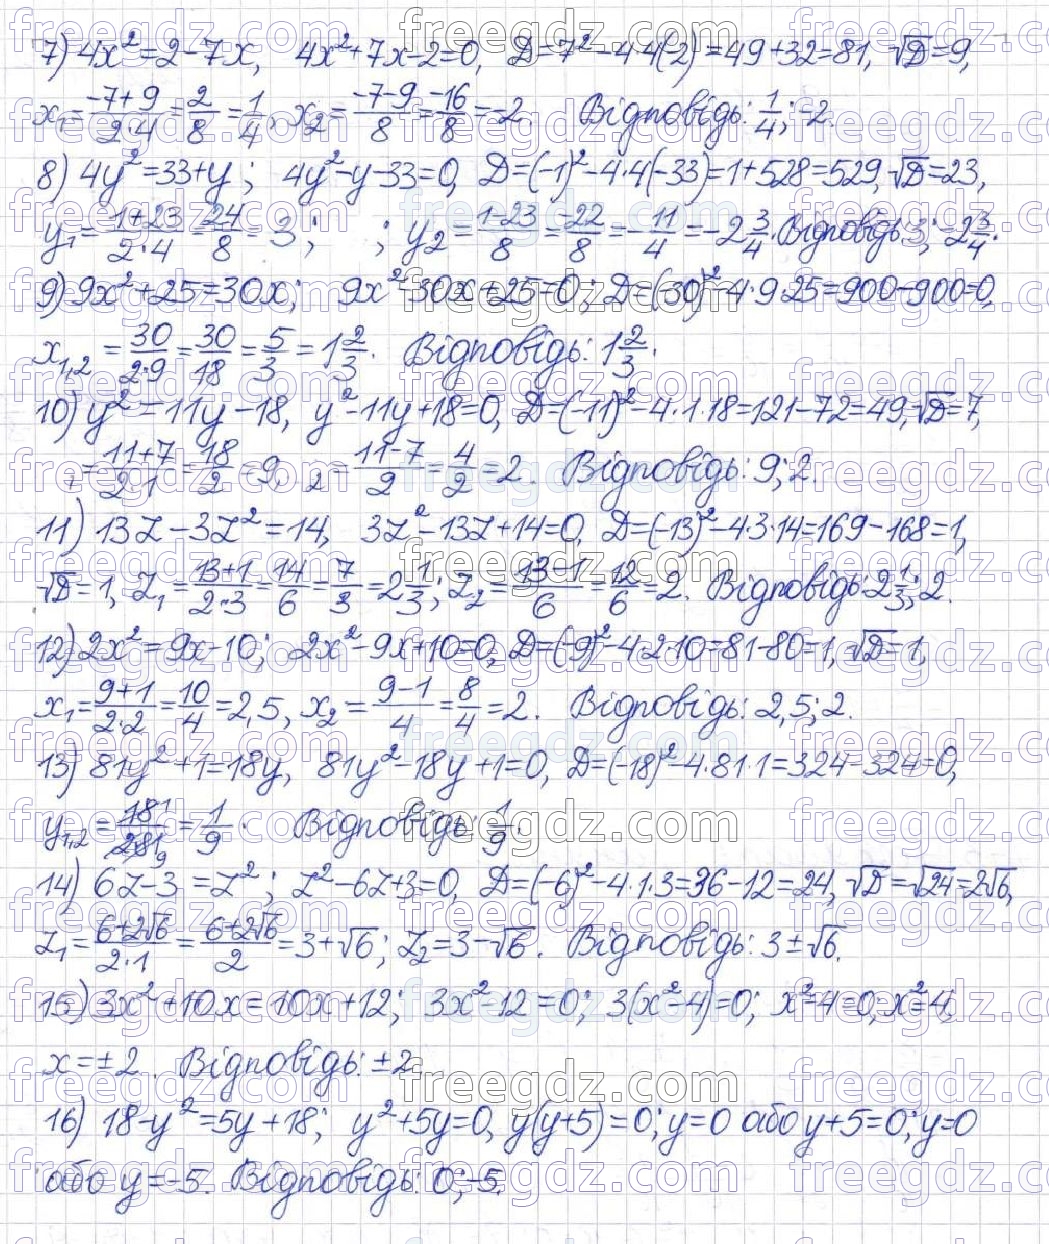 7) 4x²=2-7x, 4x²+7x-2=0, D=7²-4·4(-2)=49+32=81, √D=9,
x₁=(-7+9)/(2·4)=2/8=1/4, x₂=(-7-9)/8=-16/8=-2. Відповідь: 1/4; -2.
8) 4y²=33+y; 4y²-y-33=0, D=(-1)²-4·4(-33)=1+528=529, √D=23,
y₁=(1+23)/(2·4)=24/8=3; ; y₂=(1-23)/8=-22/8=-11/4=-2 3/4. Відповідь: 3; -2 3/4.
9) 9x²+25=30x; 9x²-30x+25=0; D=(-30)²-4·9·25=900-900=0,
x₁,₂=30/(2·9)=30/18=5/3=1 2/3. Відповідь: 1 2/3.
10) y²=11y-18, y²-11y+18=0, D=(-11)²-4·1·18=121-72=49, √D=7,
₁=(11+7)/(2·1)=18/2=9, ₂=(11-7)/2=4/2=2. Відповідь: 9; 2.
11) 13z-3z²=14, 3z²-13z+14=0, D=(-13)²-4·3·14=169-168=1,
√D=1, z₁=(13+1)/(2·3)=14/6=7/3=2 1/3; z₂=(13-1)/6=12/6=2. Відповідь: 2 1/3; 2.
12) 2x²=9x-10; 2x²-9x+10=0, D=(-9)²-4·2·10=81-80=1, √D=1,
x₁=(9+1)/(2·2)=10/4=2,5, x₂=(9-1)/4=8/4=2. Відповідь: 2,5; 2.
13) 81y²+1=18y, 81y²-18y+1=0, D=(-18)²-4·81·1=324-324=0,
y₁,₂=18/(2·81)=1/9. Відповідь: 1/9.
14) 6z-3=z²; z²-6z+3=0, D=(-6)²-4·1·3=36-12=24, √D=√24=2√6,
z₁=(6+2√6)/(2·1)=(6+2√6)/2=3+√6; z₂=3-√6. Відповідь: 3±√6.
15) 3x²+10x=10x+12; 3x²-12=0; 3(x²-4)=0; x²-4=0; x²=4;
x=±2. Відповідь: ±2.
16) 18-y²=5y+18; y²+5y=0, y(y+5)=0; y=0 або y+5=0; y=0
або y=-5. Відповідь: 0; -5.